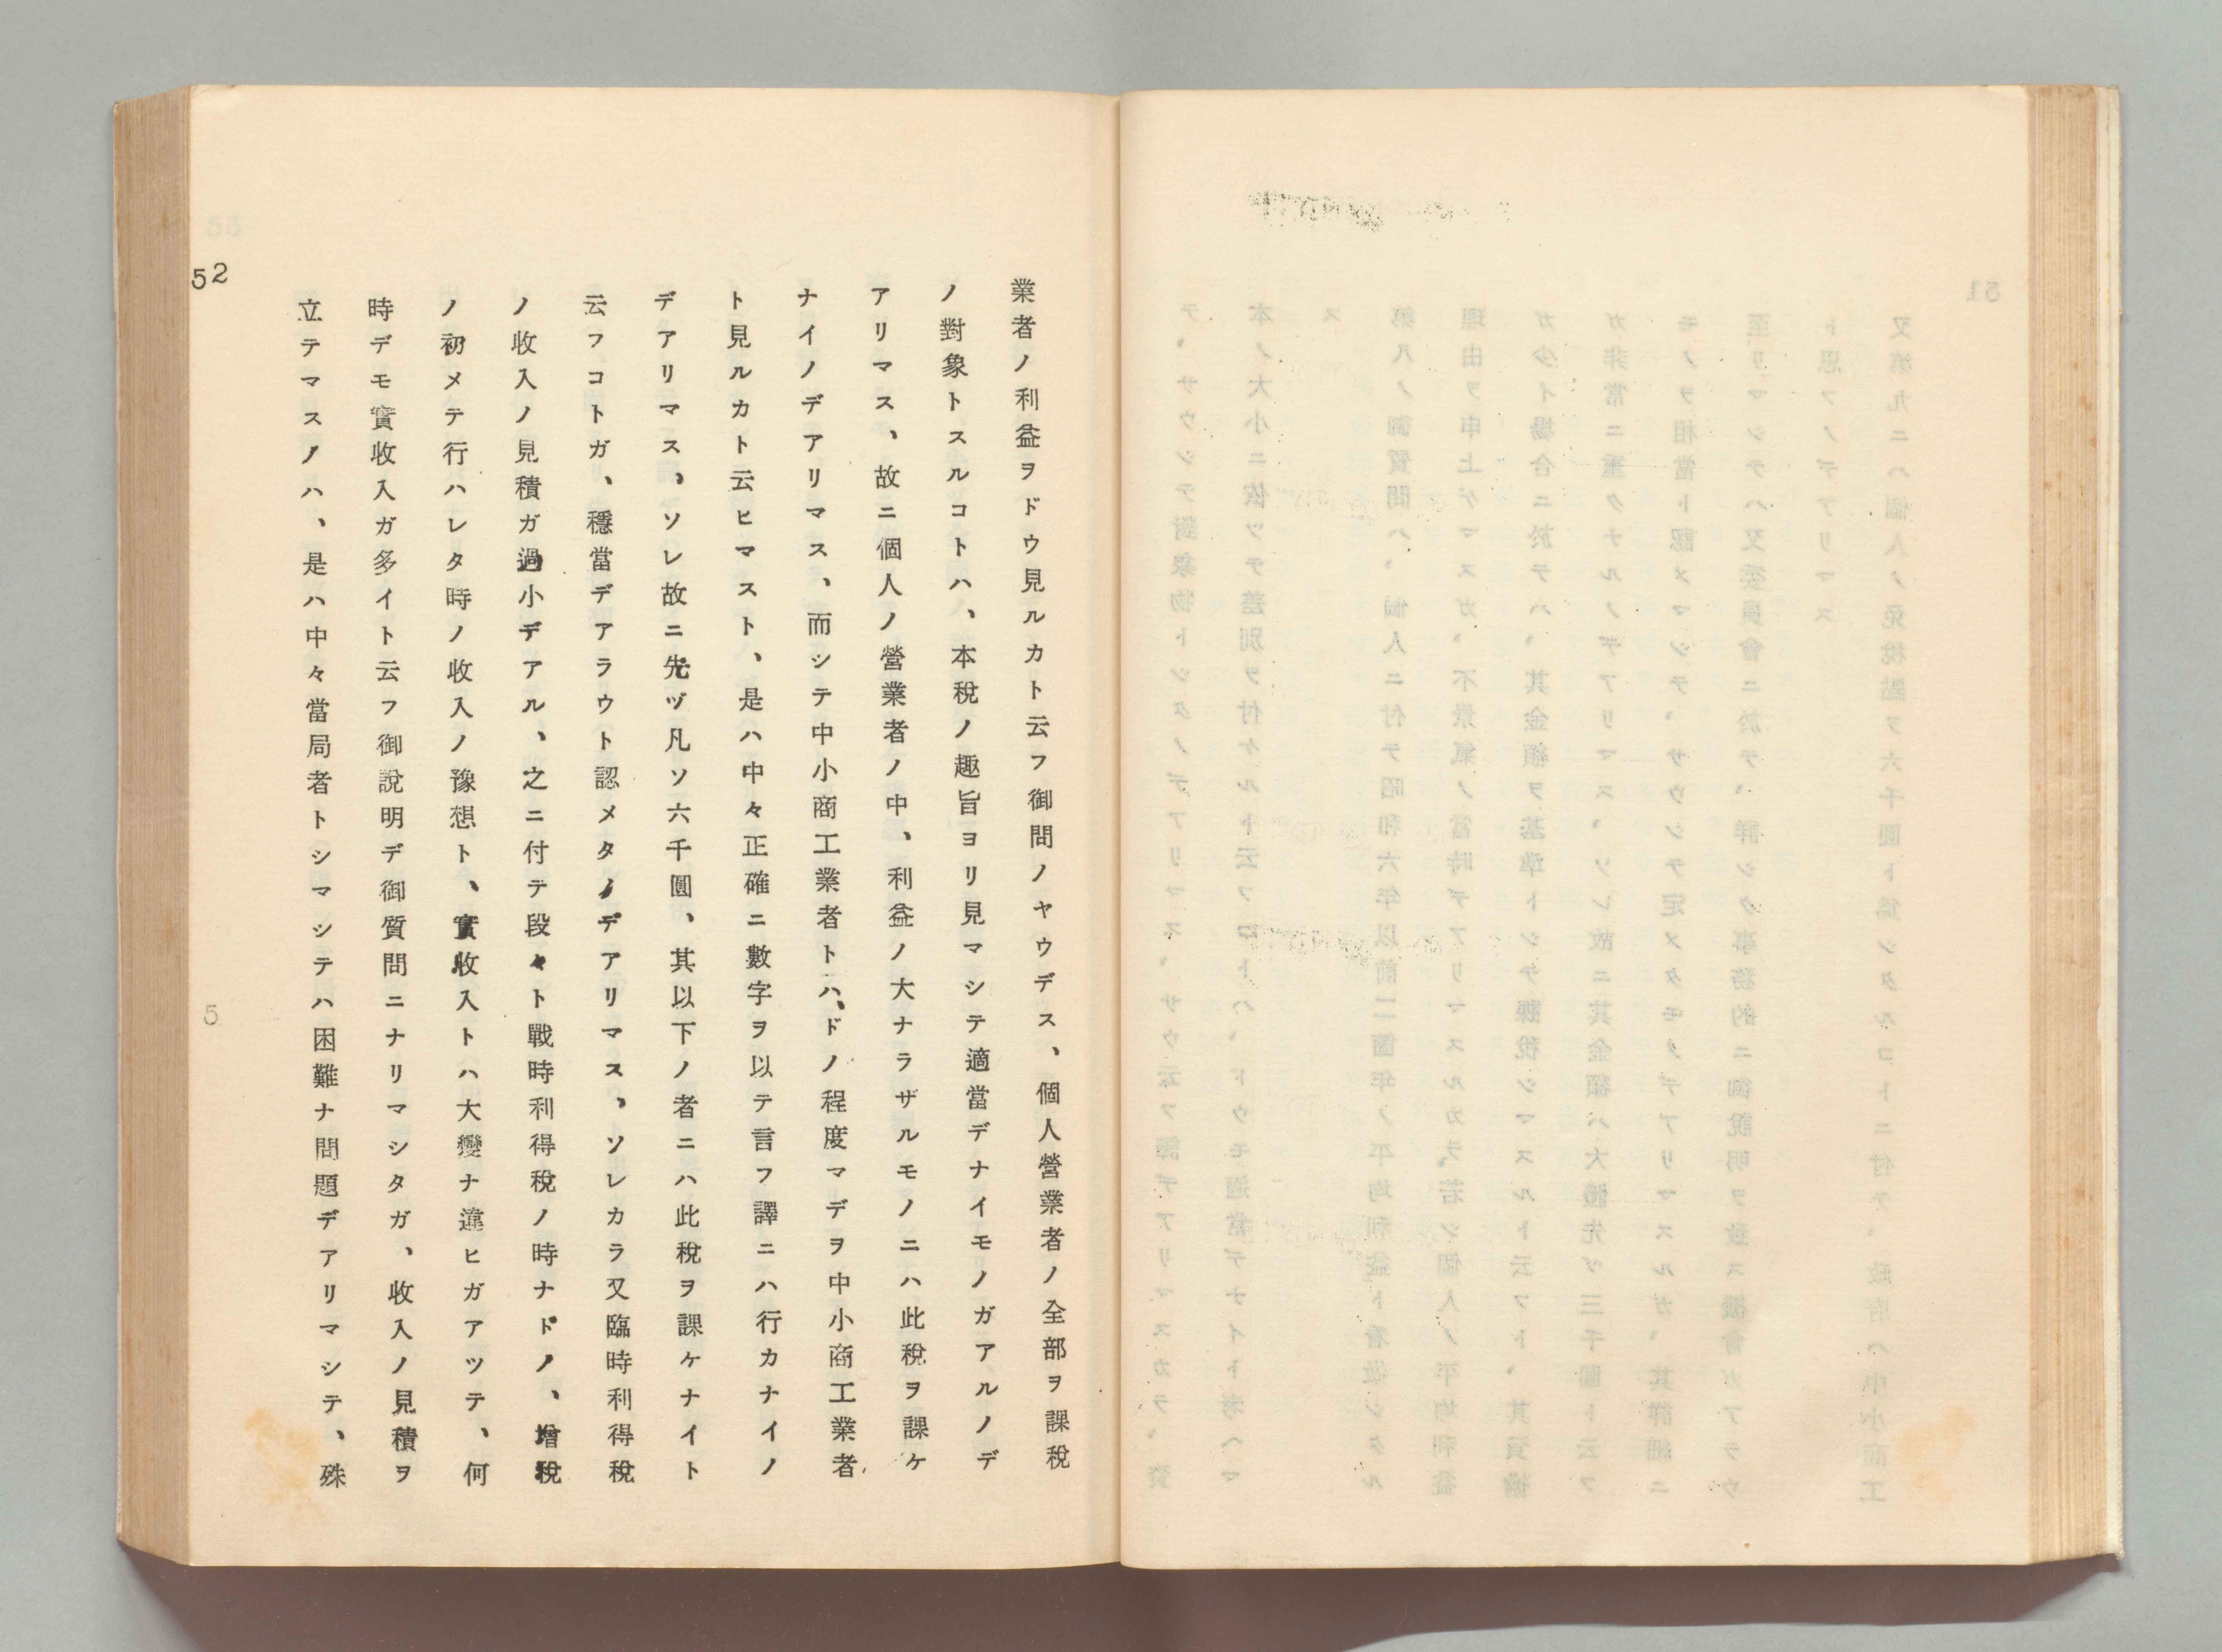 業者ノ利益ヲドウ見ルカト云フ御問ノヤウデス、個人營業者ノ全部ヲ課稅
ノ對象トスルコトハ、本稅ノ趣旨ヨリ見マシテ適當デナイモノガアルノデ
アリマス、故ニ個人ノ營業者ノ中、利益ノ大ナラザルモノニハ此稅ヲ課ケ
ナイノデアリマス、而シテ中小商工業者トハ、ドノ程度マデヲ中小商工業者
ト見ルカト云ヒマスト、是ハ中々正確ニ數字ヲ以テ言フ譯ニハ行カナイノ
デアリマス、ソレ故ニ先ヅ凡ソ六千圓、其以下ノ者ニハ此稅ヲ課ケナイト
云フコトガ、穩當デアラウト認メタノデアリマス、ソレカラ又臨時利得稅
ノ收入ノ見積ガ過小デアル、之ニ付テ段々ト戰時利得稅ノ時ナドノ、增稅
ノ初メテ行ハレタ時ノ收入ノ豫想ト、實收入トハ大變ナ違ヒガアツテ、何
時デモ實收入ガ多イト云フ御說明デ御質問ニナリマシタガ、收入ノ見積ヲ
立テマスノハ、是ハ中々當局者トシマシテハ困難ナ問題デアリマシテ、殊
52